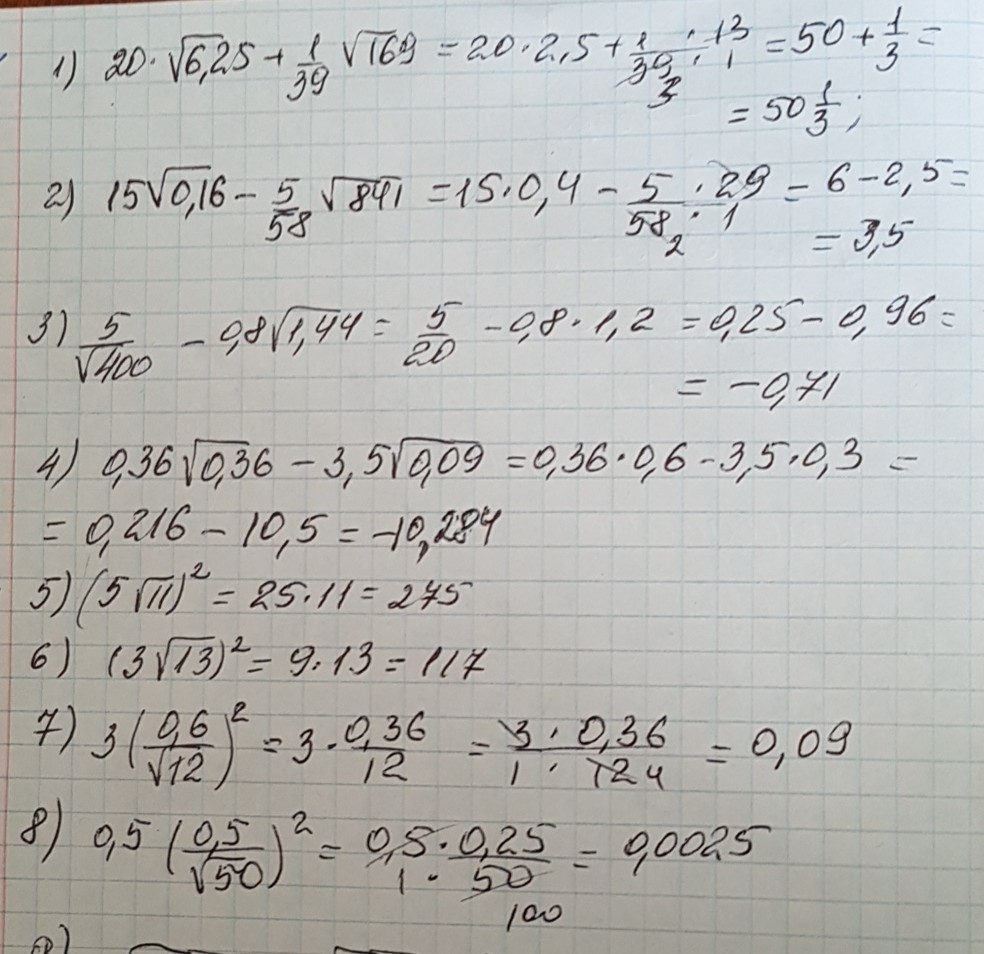 1) 20·√6,25 + 1/39 √169 = 20·2,5 + 1/39 3 · 13/1 = 50 + 1/3 =
= 50 1/3 ;
2) 15√0,16 − 5/58 √841 = 15·0,4 − 5/58 2 · 29/1 = 6 − 2,5 =
= 3,5
3) 5/√400 − 0,8√1,44 = 5/20 − 0,8·1,2 = 0,25 − 0,96 =
= −0,71
4) 0,36√0,36 − 3,5√0,09 = 0,36·0,6 − 3,5·0,3 =
= 0,216 − 10,5 = −10,284
5) (5√11)² = 25·11 = 275
6) (3√13)² = 9·13 = 117
7) 3(0,6/√12)² = 3·0,36/12 = 3·0,36/1·12 4 = 0,09
8) 0,5(0,5/√50)² = 0,5·0,25/1·50 100 = 0,0025